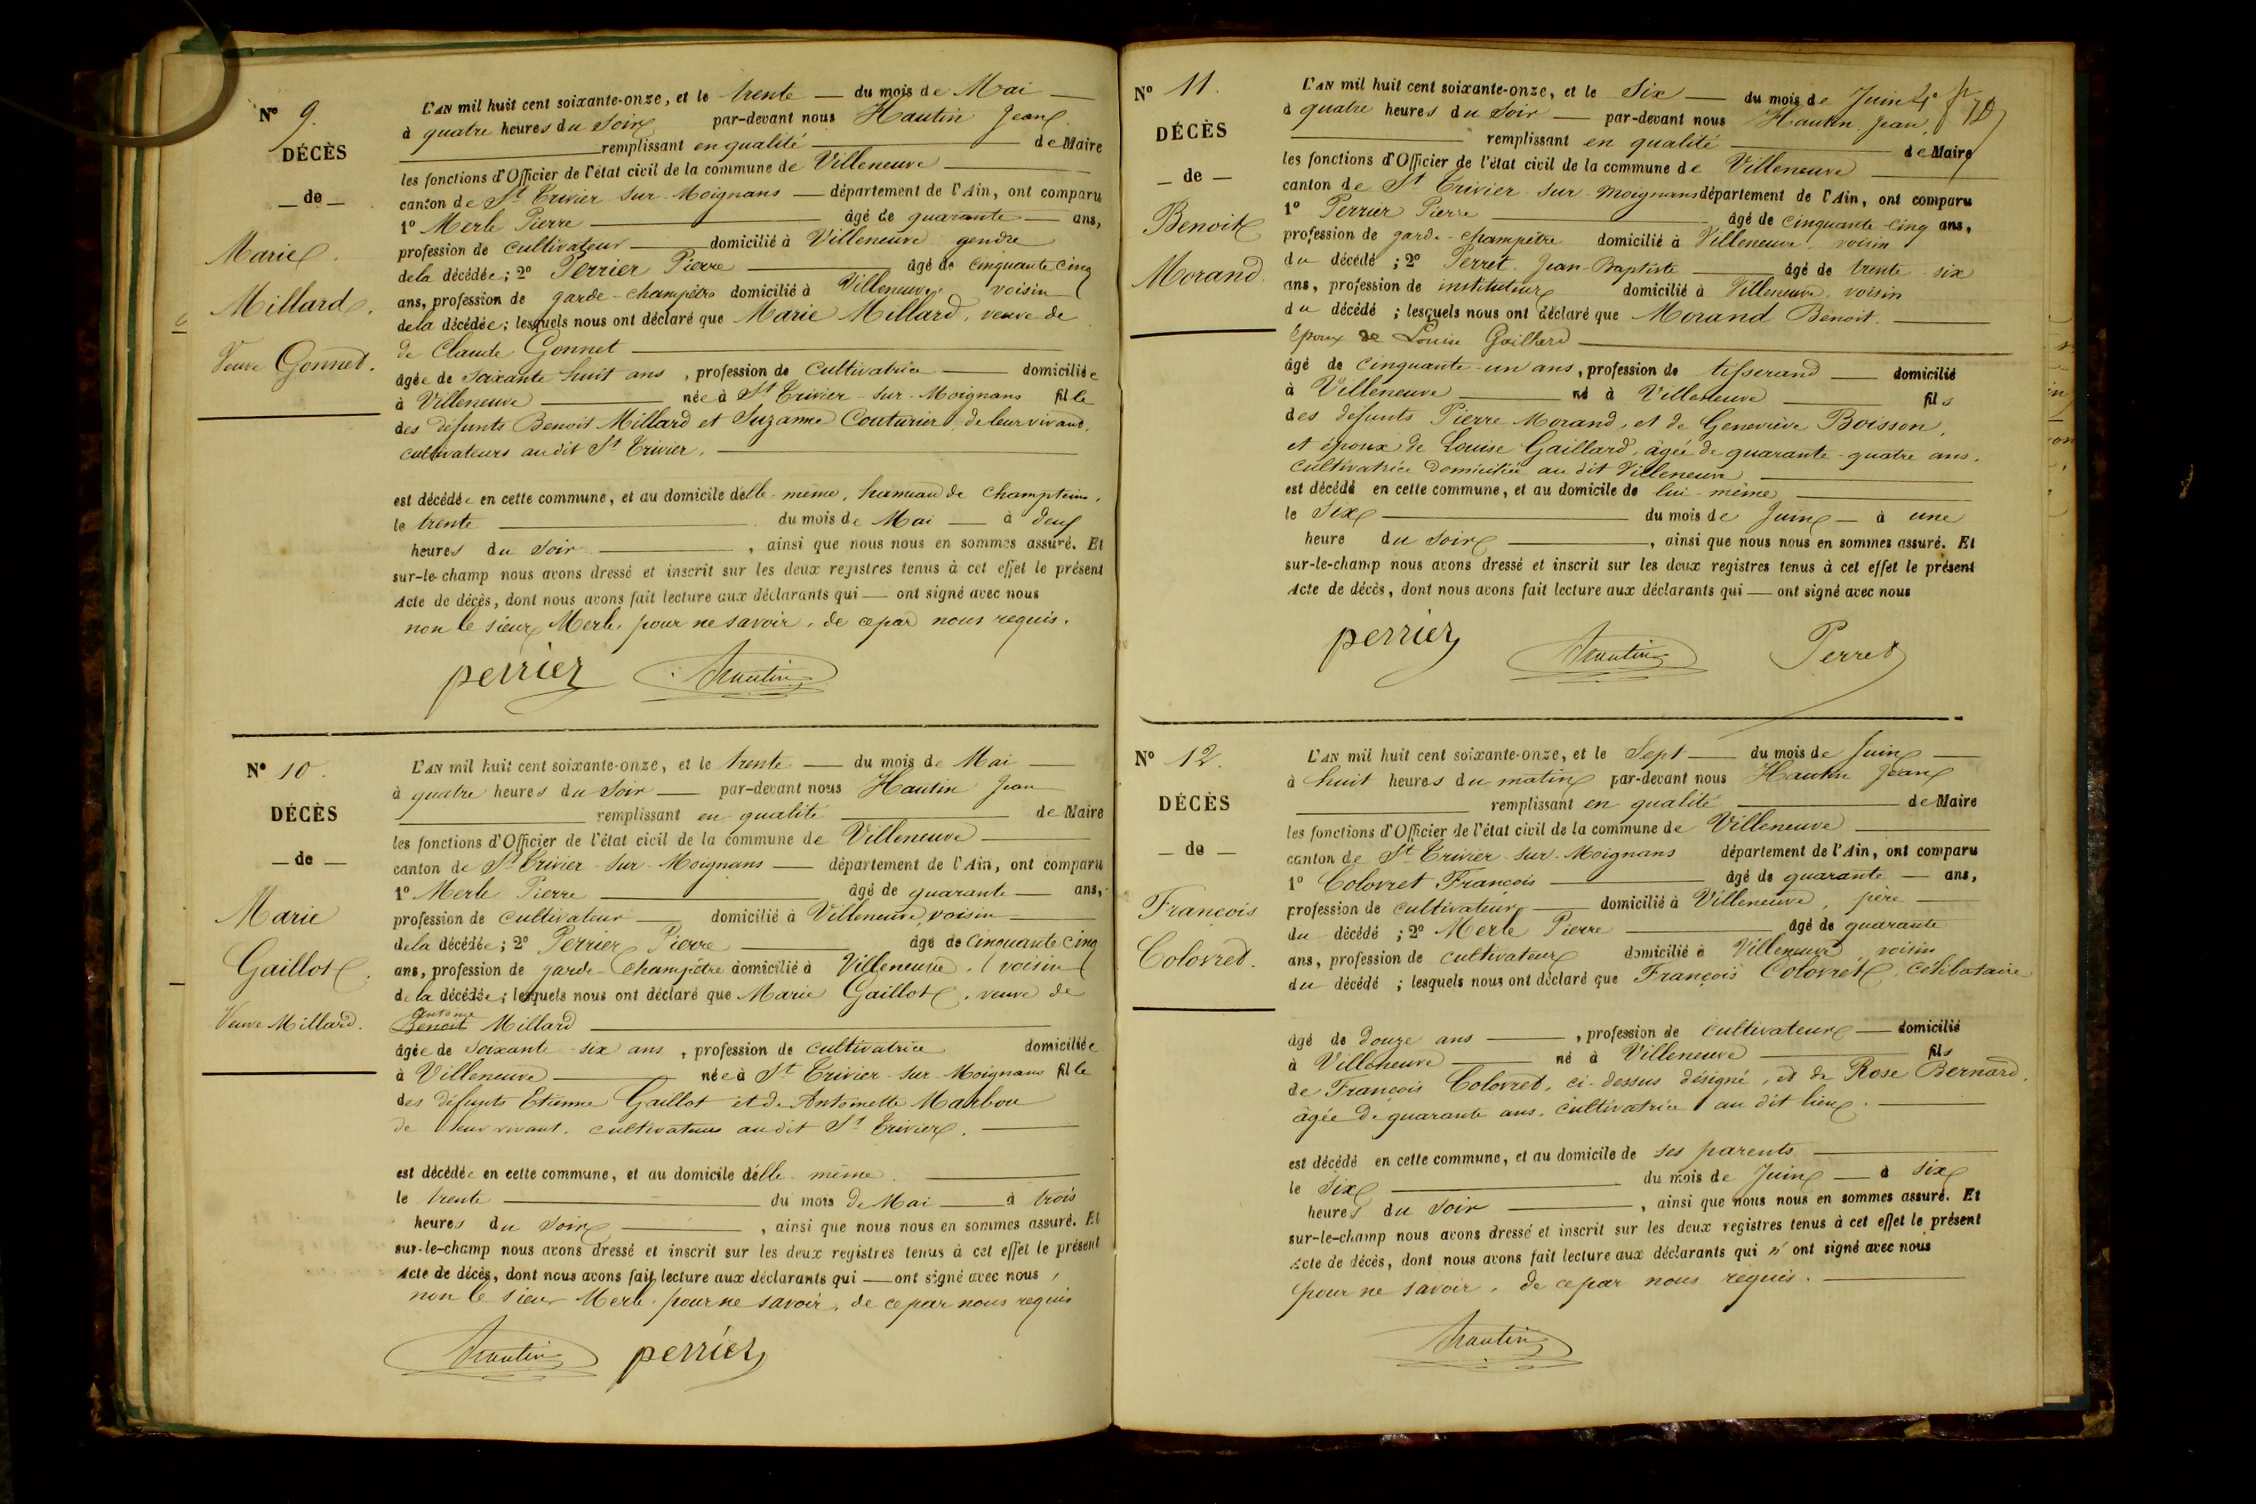 Nº 9.
DÉCÈS
de
Marie
Millard.
Veuve Gonnet.
L'AN mil huit cent soixante-onze, et le trente du mois de Mai
à quatre heures du soir par-devant nous Hautin Jean
remplissant en qualité de Maire
les fonctions d'Officier de l'état civil de la commune de Villeneuve
canton de St Trivier sur-Moignans département de l'Ain, ont comparu
1º Merle Pierre âgé de quarante ans,
profession de cultivateur domicilié à Villeneuve gendre
de la décédée ; 2º Perrier Pierre âgé de cinquante cinq
ans, profession de garde-champêtre domicilié à Villeneuve, voisin
de la décédée ; lesquels nous ont déclaré que Marie Millard, veuve de
de Claude Gonnet
âgée de soixante huit ans, profession de cultivatrice domiciliée
à Villeneuve née à St Trivier-sur-Moignans fille
des défunts Benoit Millard et Suzanne Couturier, de leur vivant,
cultivateurs au dit St Trivier.
est décédée en cette commune, et au domicile d'elle-même, hameau de Champteins,
le trente du mois de Mai à deux
heures du soir, ainsi que nous nous en sommes assuré. Et
sur-le-champ nous avons dressé et inscrit sur les deux registres tenus à cet effet le présent
Acte de décès, dont nous avons fait lecture aux déclarants qui ont signé avec nous
non le sieur Merle, pour ne savoir, de ce par nous requis.
perrier Hautin
Nº 10.
DÉCÈS
de
Marie
Gaillot.
Veuve Millard.
L'AN mil huit cent soixante-onze, et le trente du mois de Mai
à quatre heures du soir par-devant nous Hautin Jean
remplissant en qualité de Maire
les fonctions d'Officier de l'état civil de la commune de Villeneuve
canton de St Trivier-sur-Moignans département de l'Ain, ont comparu
1º Merle Pierre âgé de quarante ans,
profession de cultivateur domicilié à Villeneuve, voisin
de la décédée ; 2º Perrier Pierre âgé de cinquante cinq
ans, profession de garde-champêtre domicilié à Villeneuve, voisin
de la décédée ; lesquels nous ont déclaré que Marie Gaillot, veuve de
Antoine
Benoit Millard
âgée de soixante-six ans, profession de cultivatrice domiciliée
à Villeneuve née à St Trivier-sur-Moignans fille
des défunts Etienne Gaillot et de Antoinette Marbou
de leur vivant, cultivateurs au dit St Trivier.
est décédée en cette commune, et au domicile d'elle-même.
le trente du mois de Mai à trois
heures du soir, ainsi que nous nous en sommes assuré. Et
sur-le-champ nous avons dressé et inscrit sur les deux registres tenus à cet effet le présent
Acte de décès, dont nous avons fait lecture aux déclarants qui ont signé avec nous,
non le sieur Merle, pour ne savoir, de ce par nous requis
Hautin perrier
Nº 11.
DÉCÈS
de
Benoit
Morand.
L'AN mil huit cent soixante-onze, et le Six du mois de Juin
à quatre heures du soir par-devant nous Hautin Jean,
remplissant en qualité de Maire
les fonctions d'Officier de l'état civil de la commune de Villeneuve
canton de St Trivier-sur-Moignans département de l'Ain, ont comparu
1º Perrier Pierre âgé de cinquante cinq ans,
profession de garde-champêtre domicilié à Villeneuve, voisin
du décédé ; 2º Perret Jean-Baptiste âgé de trente-six
ans, profession de instituteur domicilié à Villeneuve, voisin
du décédé ; lesquels nous ont déclaré que Morand Benoit.
Epoux de Louise Gaillard
âgé de cinquante-un ans, profession de tisserand domicilié
à Villeneuve né à Villeneuve fils
des défunts Pierre Morand, et de Geneviève Boisson,
et époux de Louise Gaillard, âgée de quarante-quatre ans,
cultivatrice domiciliée au dit Villeneuve
est décédé en cette commune, et au domicile de lui-même
le Six du mois de Juin à une
heure du soir, ainsi que nous nous en sommes assuré. Et
sur-le-champ nous avons dressé et inscrit sur les deux registres tenus à cet effet le présent
Acte de décès, dont nous avons fait lecture aux déclarants qui ont signé avec nous
perrier Hautin Perret
Nº 12.
DÉCÈS
de
François
Colovret.
L'AN mil huit cent soixante-onze, et le Sept du mois de Juin
à huit heures du matin par-devant nous Hautin Jean
remplissant en qualité de Maire
les fonctions d'Officier de l'état civil de la commune de Villeneuve
canton de St Trivier-sur-Moignans département de l'Ain, ont comparu
1º Colovret François âgé de quarante ans,
profession de cultivateur domicilié à Villeneuve, père
du décédé ; 2º Merle Pierre âgé de quarante
ans, profession de cultivateur domicilié à Villeneuve, voisin
du décédé ; lesquels nous ont déclaré que François Colovret, célibataire
âgé de douze ans, profession de cultivateur domicilié
à Villeneuve né à Villeneuve fils
de François Colovret, ci-dessus désigné, et de Rose Bernard,
âgée de quarante ans, cultivatrice au dit lieu.
est décédé en cette commune, et au domicile de ses parents
le Six du mois de Juin à six
heures du soir, ainsi que nous nous en sommes assuré. Et
sur-le-champ nous avons dressé et inscrit sur les deux registres tenus à cet effet le présent
Acte de décès, dont nous avons fait lecture aux déclarants qui n'ont signé avec nous
pour ne savoir, de ce par nous requis.
Hautin